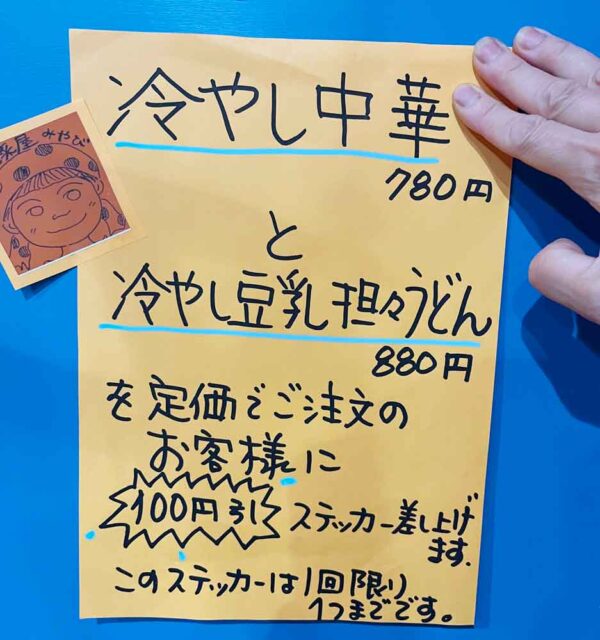 冷やし中華
780円
と
冷やし豆乳担々うどん
880円
を定価でご注文の
お客様に
100円引 ステッカー差し上げ
ます.
このステッカーは1回限り
1つまでです。
屋 みやび